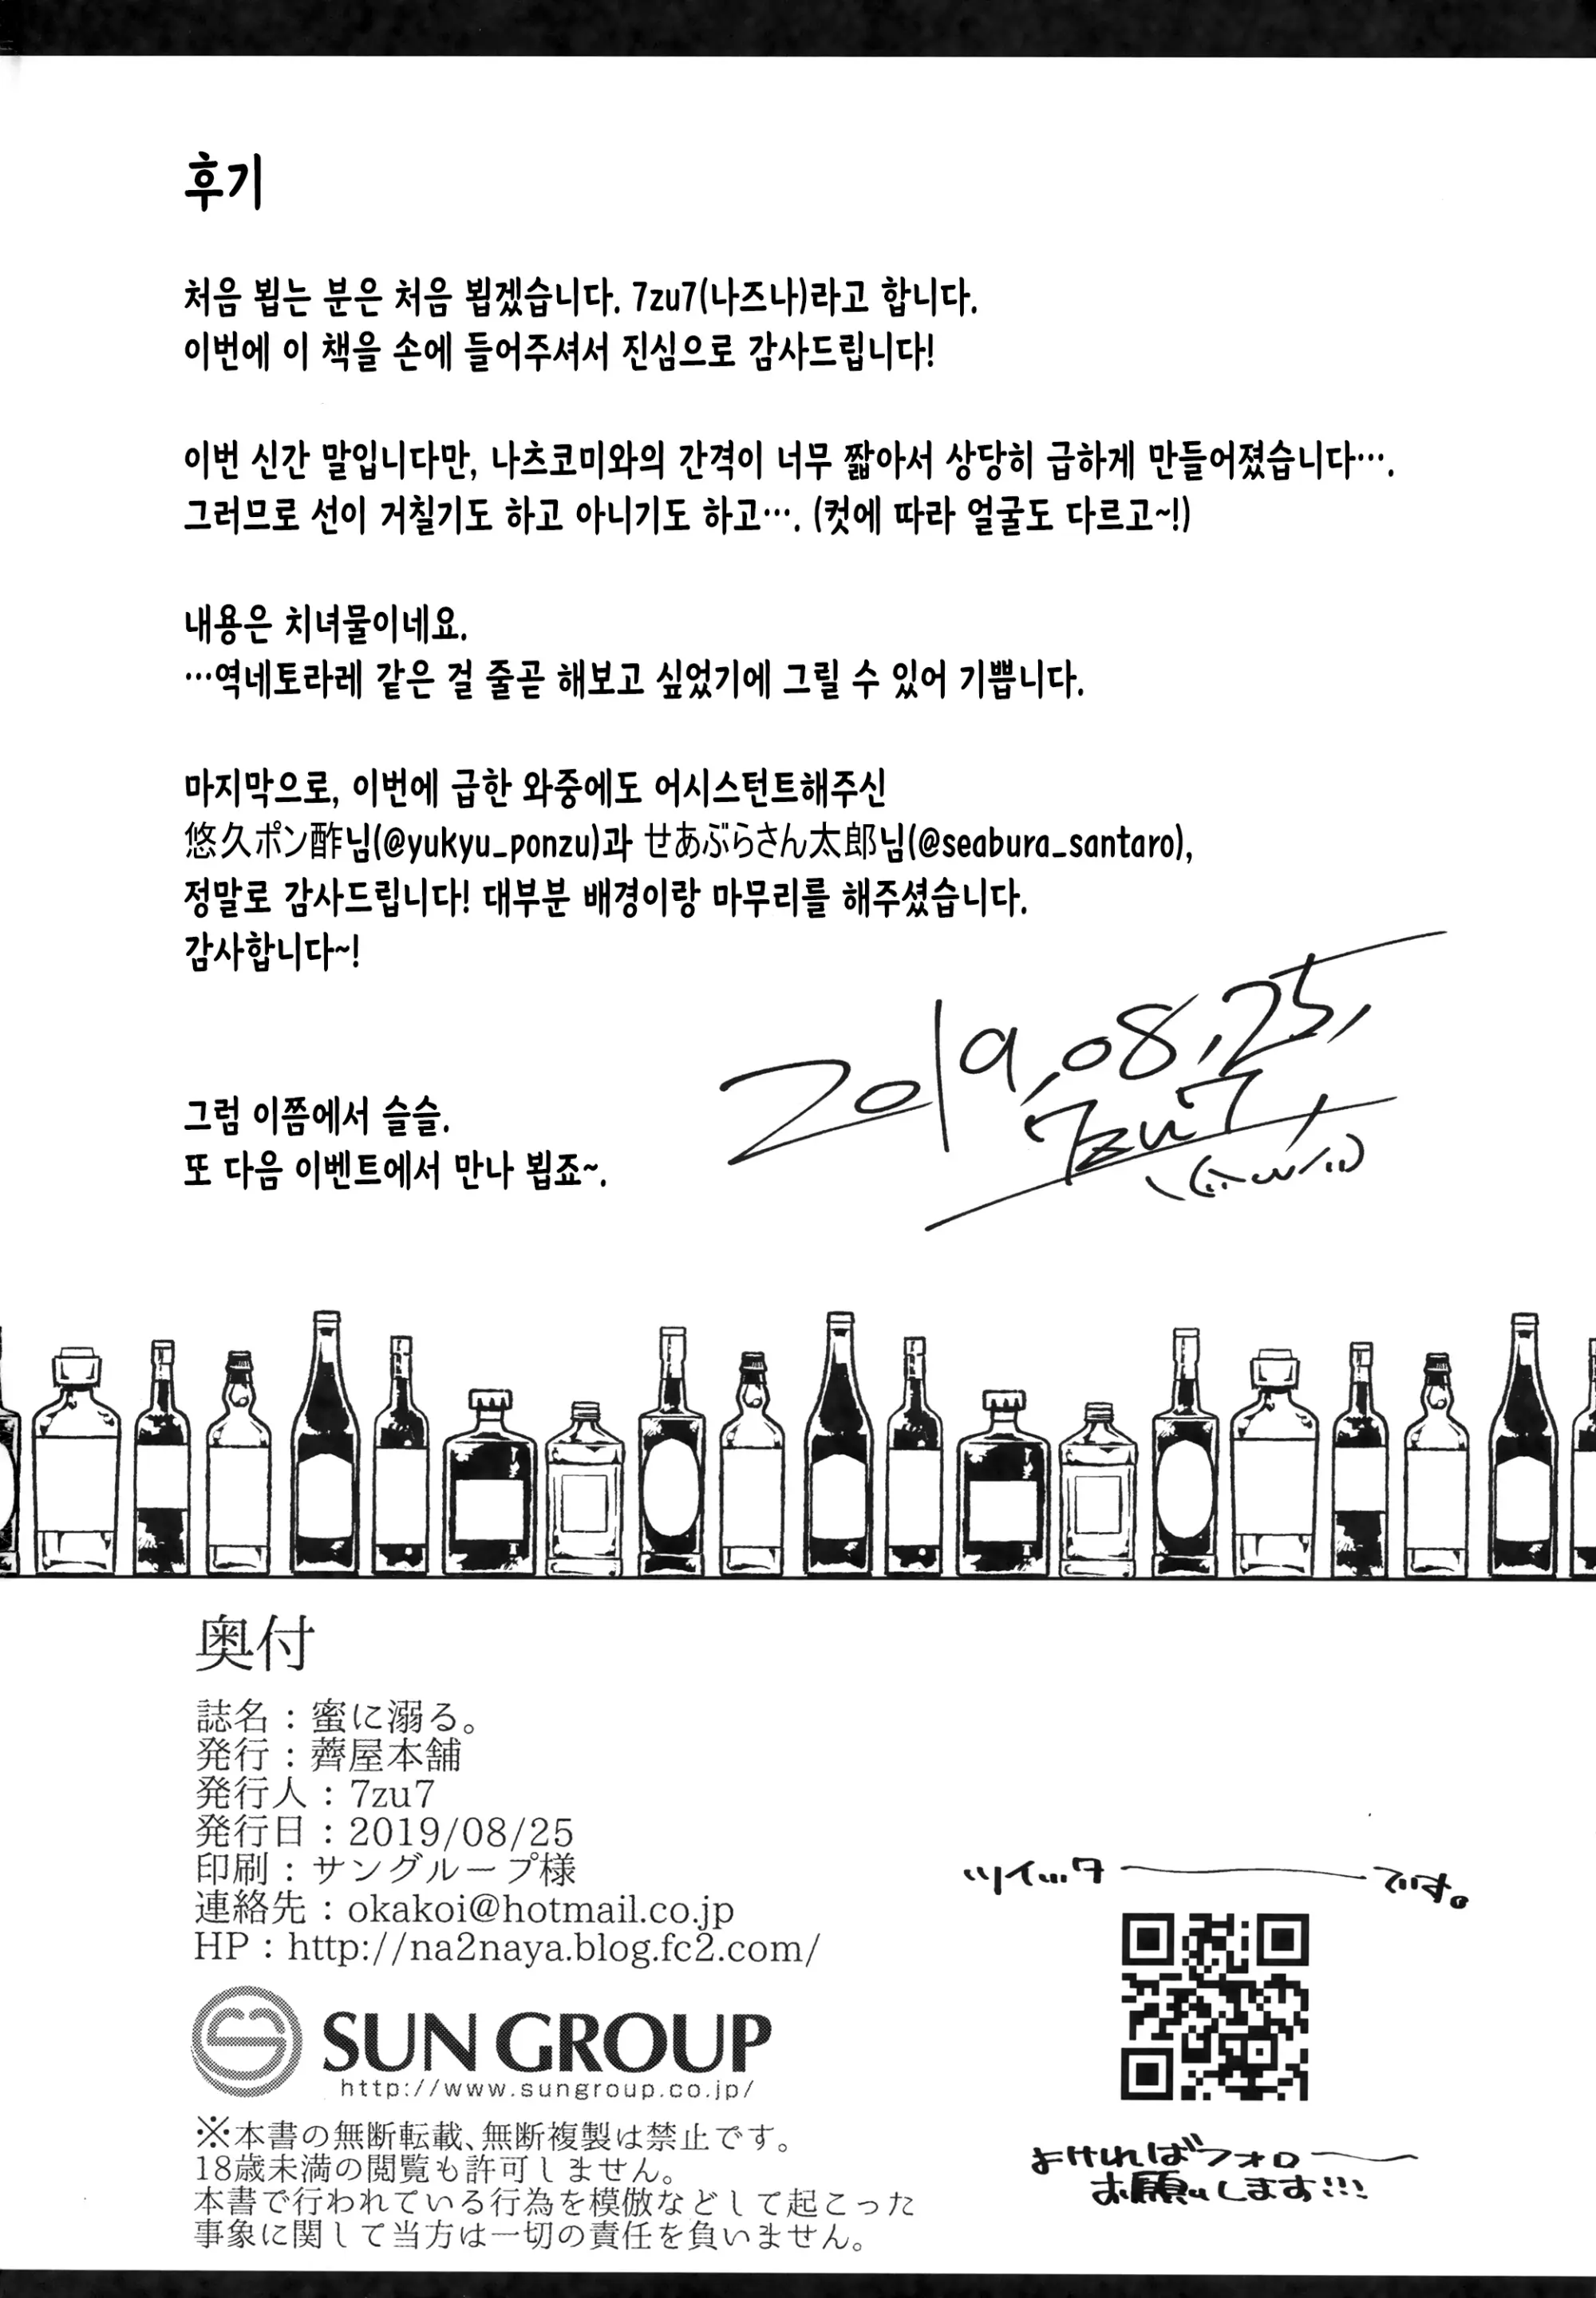 후기
처음 뵙는 분은 처음 뵙겠습니다. 7zu7(나즈나)라고 합니다.
이번에 이 책을 손에 들어주셔서 진심으로 감사드립니다!
이번 신간 말입니다만, 나츠코미와의 간격이 너무 짧아서 상당히 급하게 만들어졌습니다….
그러므로 선이 거칠기도 하고 아니기도 하고…. (컷에 따라 얼굴도 다르고~!)
내용은 치녀물이네요.
…역네토라레 같은 걸 줄곧 해보고 싶었기에 그릴 수 있어 기쁩니다.
마지막으로, 이번에 급한 와중에도 어시스턴트해주신
悠久ポン酢님(@yukyu_ponzu)과 せあぶらさん太郎님(@seabura_santaro),
정말로 감사드립니다! 대부분 배경이랑 마무리를 해주셨습니다.
감사합니다~!
2019.08.25.
7zu7
그럼 이쯤에서 슬슬.
또 다음 이벤트에서 만나 뵙죠~.
奥付
誌名：蜜に溺る。
発行：薺屋本舗
発行人：7zu7
発行日：2019/08/25
印刷：サングループ様
連絡先：okakoi@hotmail.co.jp
HP：http://na2naya.blog.fc2.com/
SUN GROUP
http://www.sungroup.co.jp/
※本書の無断転載、無断複製は禁止です。
18歳未満の閲覧も許可しません。
本書で行われている行為を模倣などして起こった
事象に関して当方は一切の責任を負いません。
ツイッター――です。
よければフォロー
お願いします!!!